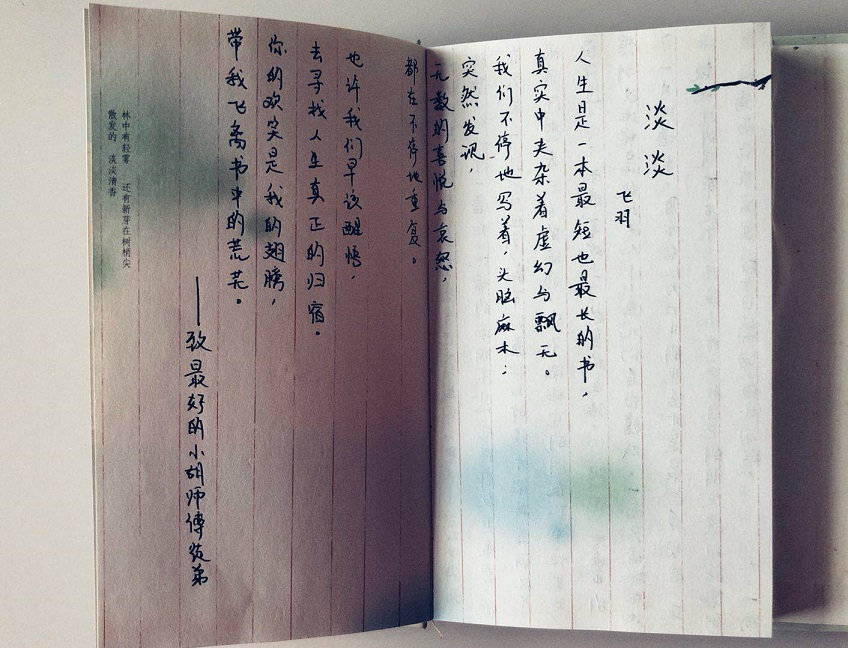 淡淡
飞羽
人生是一本最短也最长的书，
真实中夹杂着虚幻与飘无。
我们不停地写着，头脑麻木；
突然发现，
无数的喜悦与哀怒，
都在不停地重复。
也许我们早该醒悟，
去寻找人生真正的归宿。
你的欢笑是我的翅膀，
带我飞离书中的荒芜。
——致最好的小胡师傅徒弟
林中有轻雾 还有新芽在树梢尖
散发的 淡淡清香